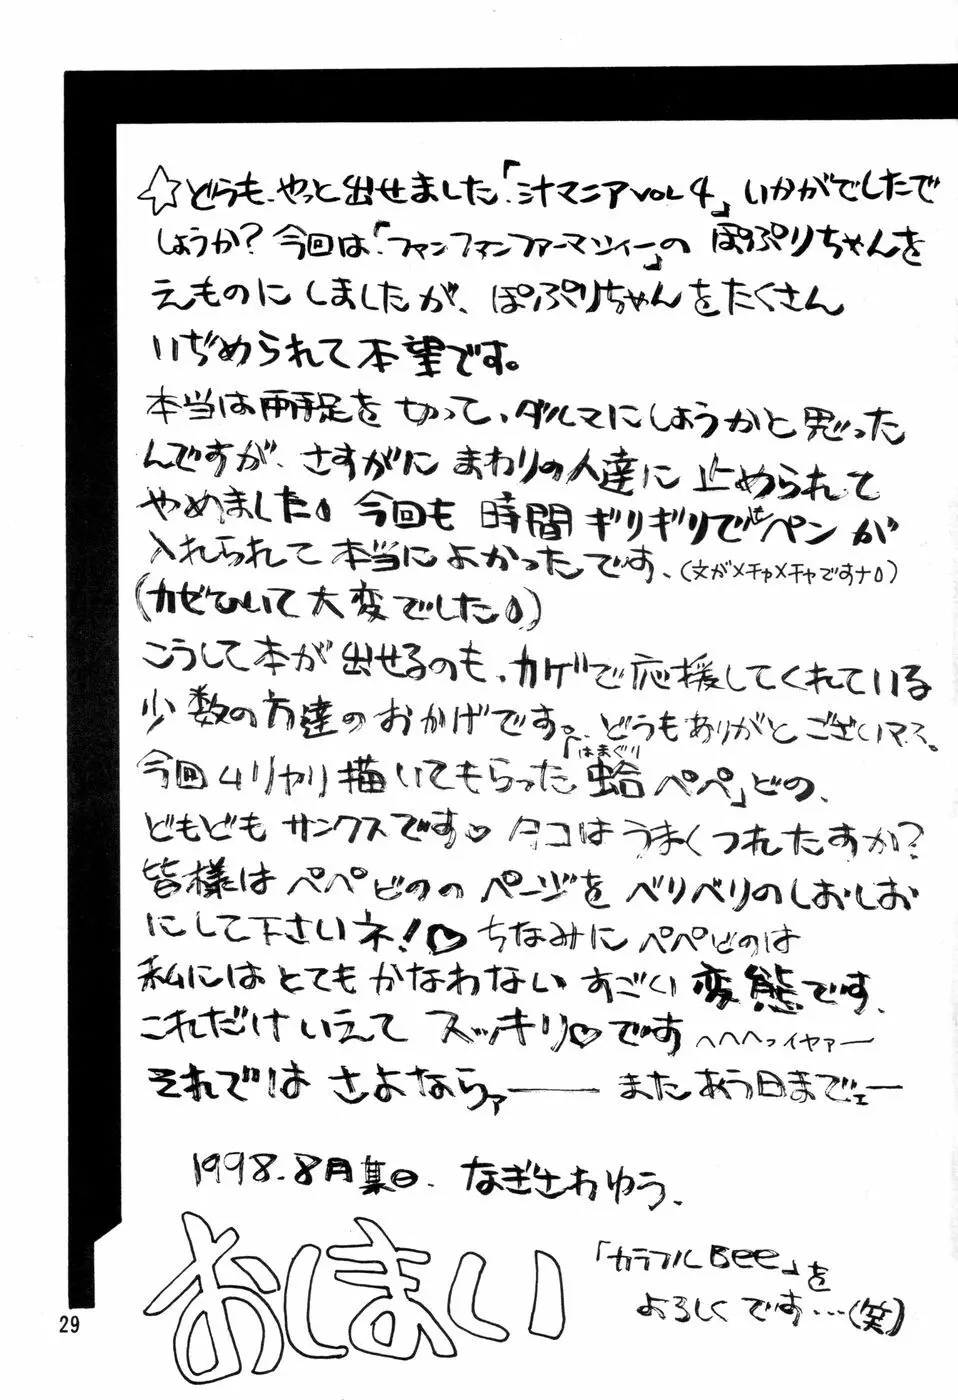 ☆どうも、やっと出せました「汁マニアvol4」いかがでしたで
しょうか?今回は「ファンファンファーマシィー」の ぽぷりちゃんを
えものに しましたが、ぽぷりちゃんをたくさん
いぢめられて本望です。
本当は両手足を切って、ダルマにしようかと思った
んですが、さすがに まわりの人達に 止められて
やめました 今回も 時間ギリギリで ペンが
入れられて 本当によかったです、(文がメチャメチャですナ)
(カゼひいて大変でした)
こうして本が出せるのも、カゲで応援してくれている
少数の方達のおかげです。どうもありがとございマス。
今回ムリヤリ描いてもらった「蛤ペペ」どの、
はまぐり
どもども サンクスです♡ タコはうまくつれたすか?
皆様は ペペどのの ページを ベリベリのしおしお
にして下さいネ!♡ ちなみに ペペどのは
私にはとてもかなわない すごい 変態です、
これだけいえて スッキリ♡です へへへっイヤァー
それでは さよならァ―― またあう日までェ―
1998.8月集日、なぎさわゆう、
おしまい
「カラフルBee」を
よろしくです…(笑)
29